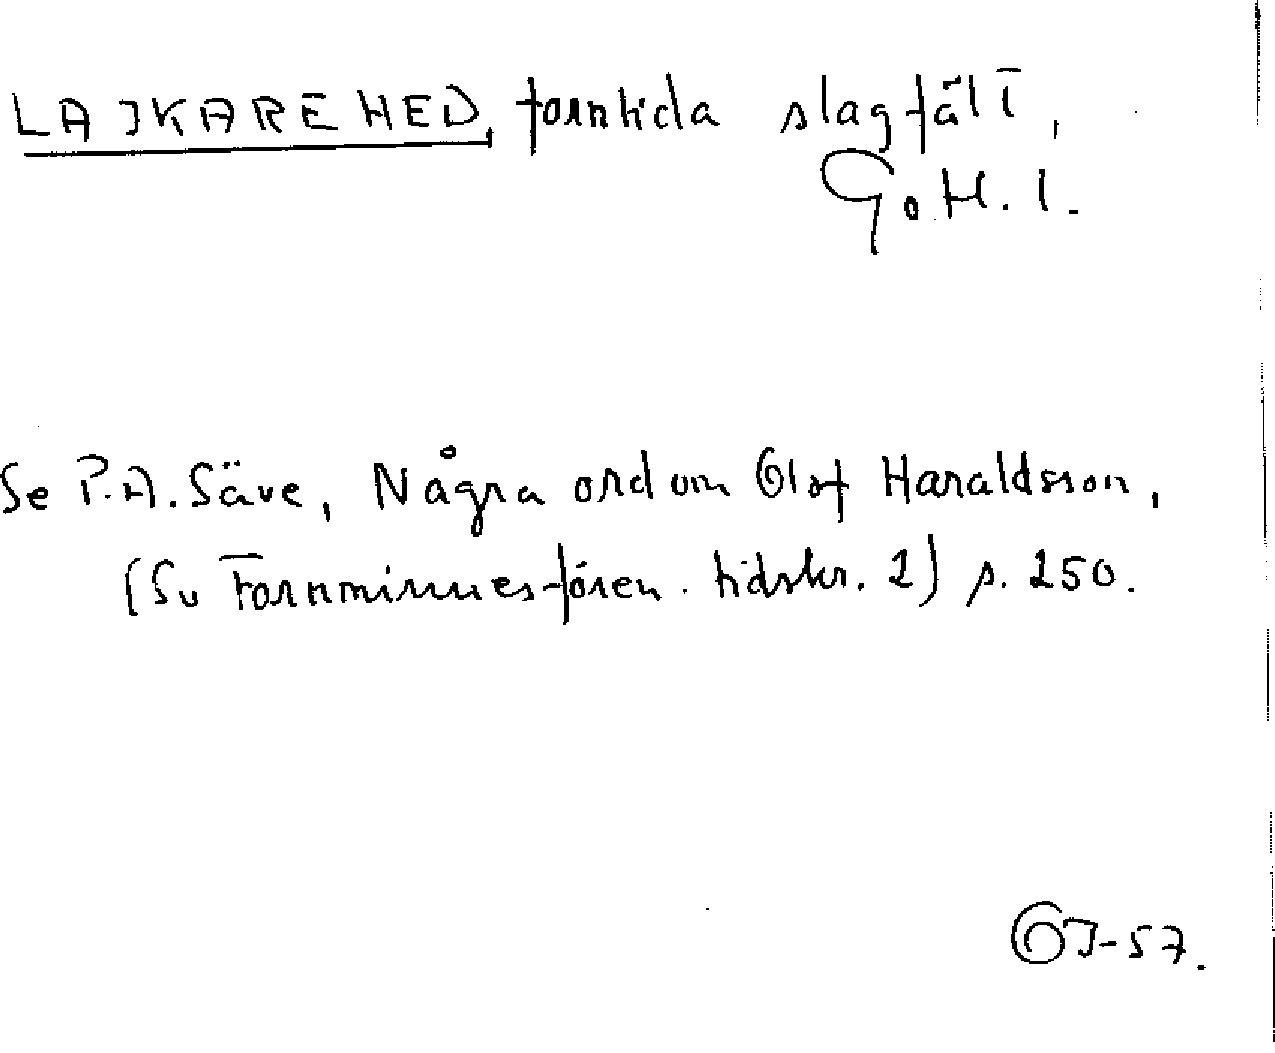 LAJKARE HED, forntida slagfält,
Go. H. 1.
Se P.A. Säve, Några ord om Olof Haraldsson,
(Sv Fornminnesfören. tidskr. 2) s. 250.
OJ-57.